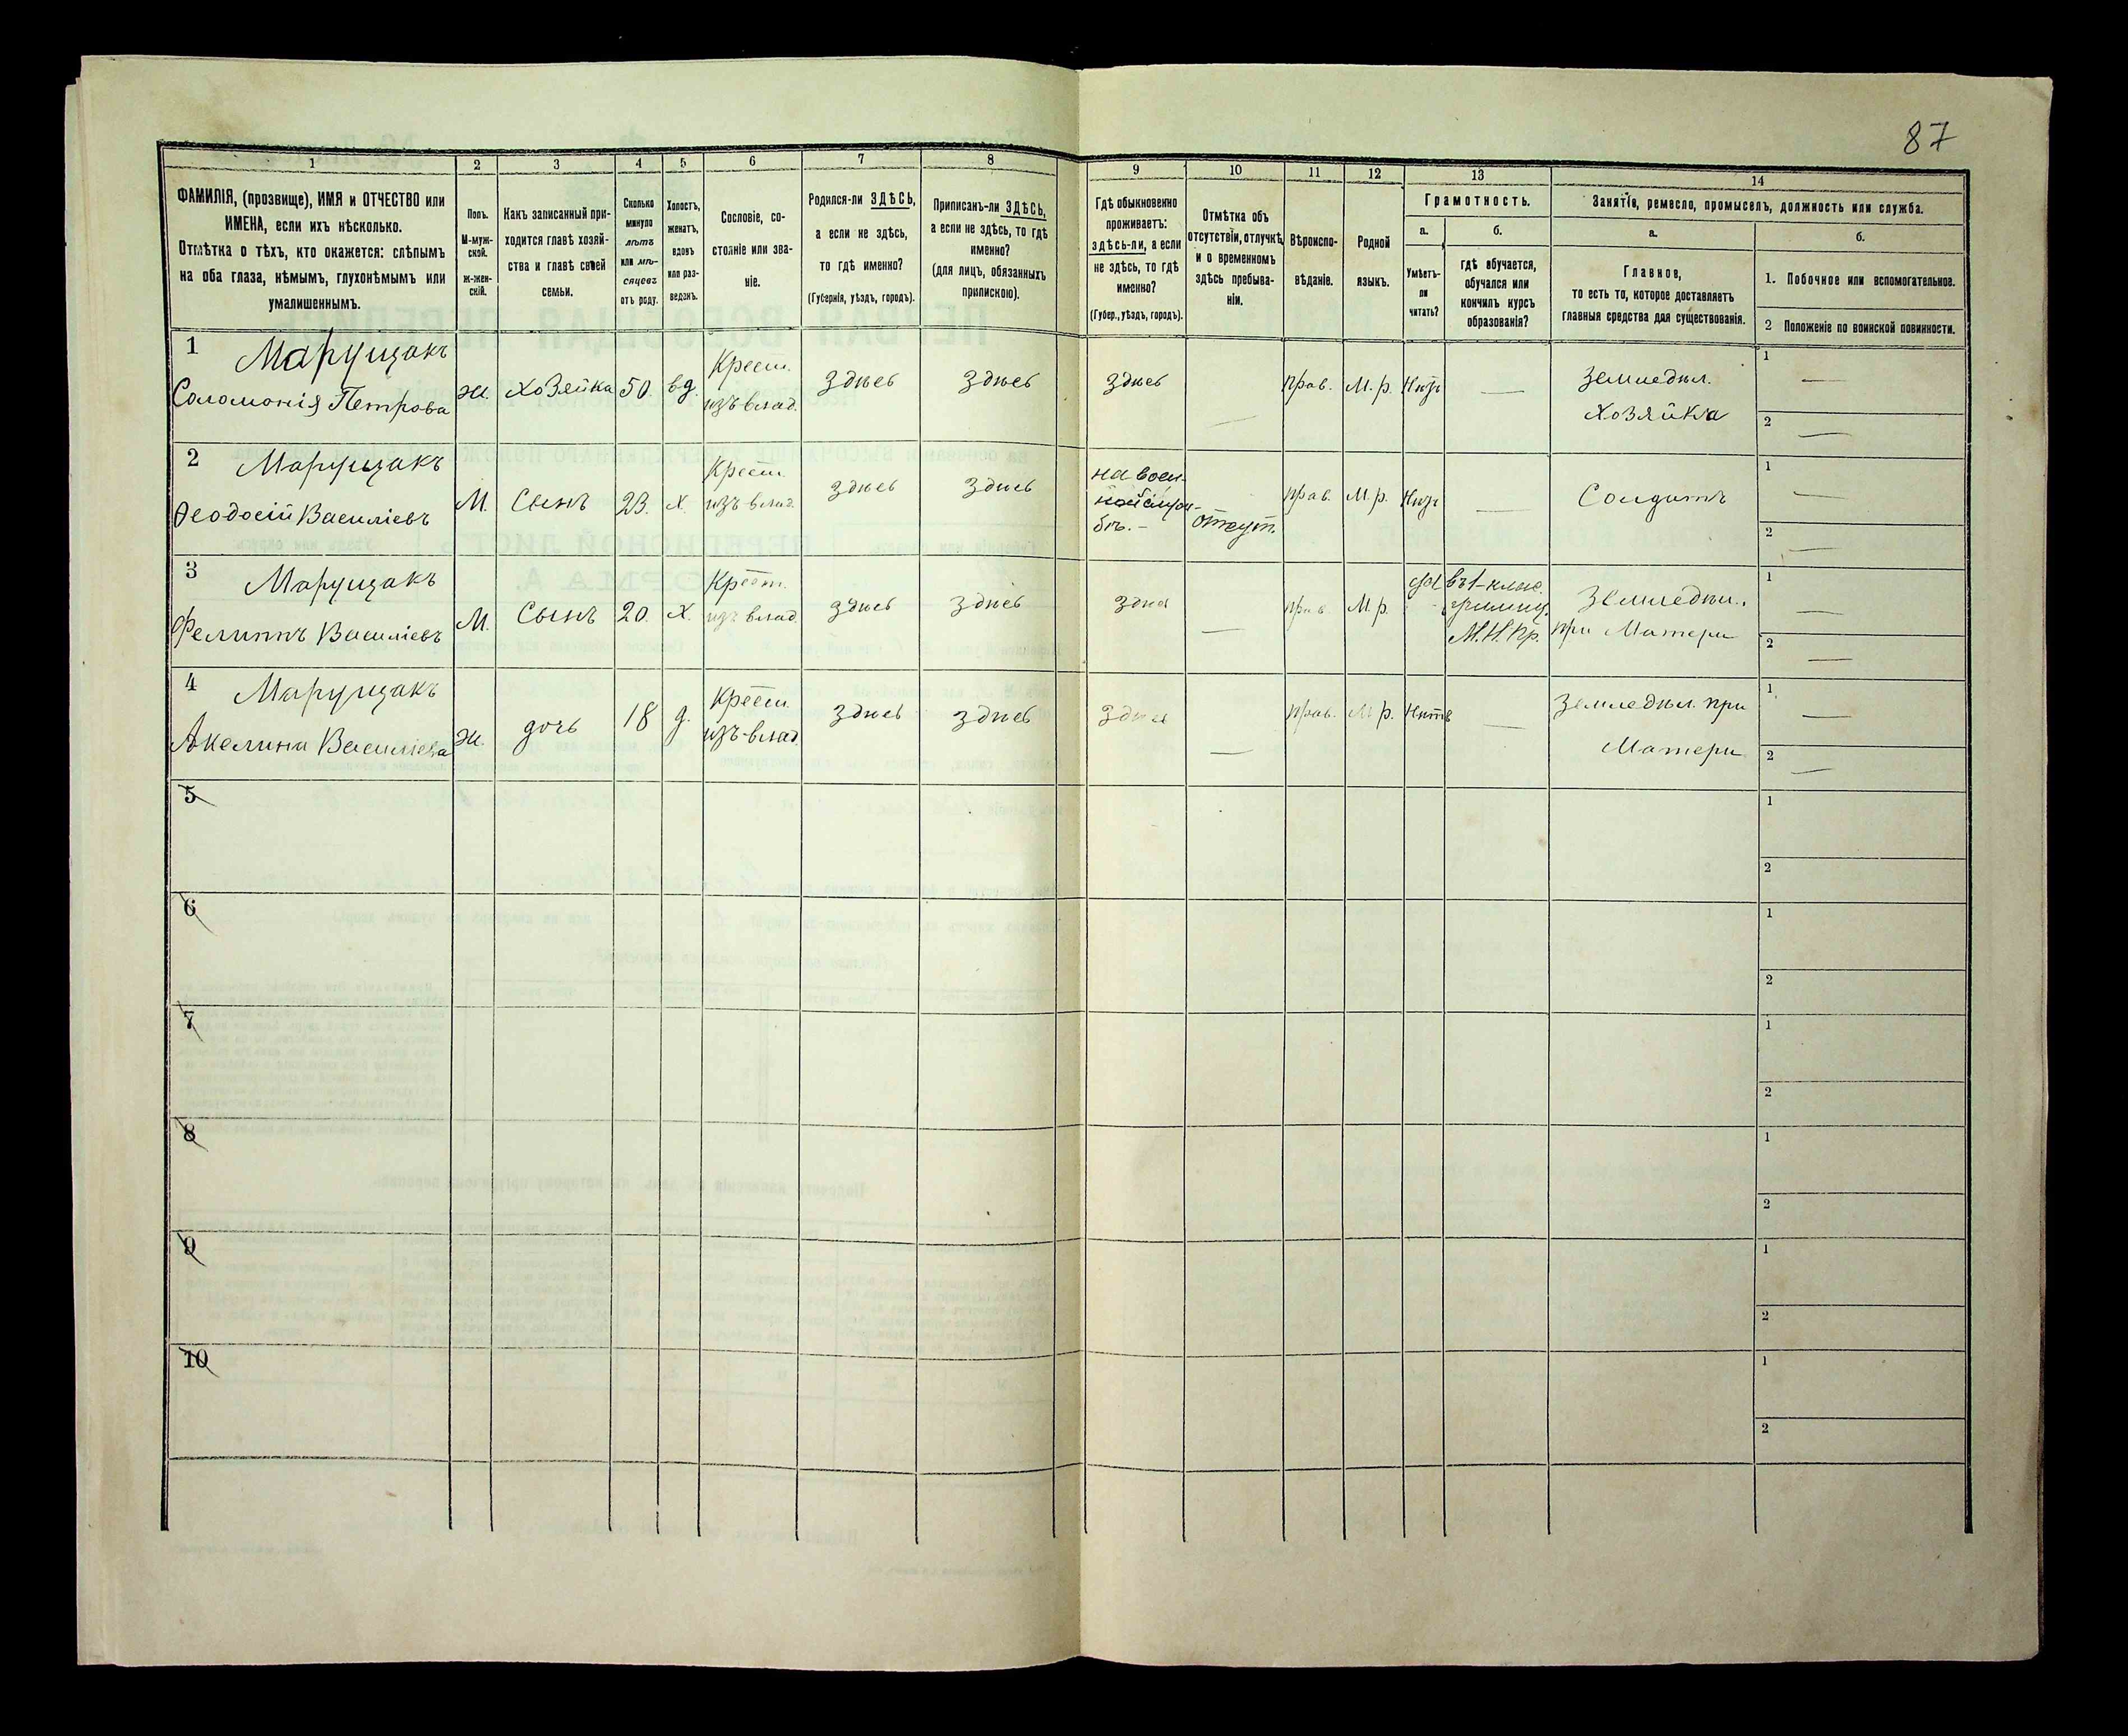 87
1 2 3 4 5 6 7 8 9 10 11 12 13 14
ФАМИЛІЯ, (прозвище), ИМЯ и ОТЧЕСТВО или
ИМЕНА, если ихъ нѣсколько.
Отмѣтка о тѣхъ, кто окажется: слѣпымъ
на оба глаза, нѣмымъ, глухонѣмымъ или
умалишеннымъ.
Полъ.
М-муж-
ской.
ж-жен-
скій.
Какъ записанный при-
ходится главѣ хозяй-
ства и главѣ своей
семьи.
Сколько
минуло
лѣтъ
или мѣ-
сяцевъ
отъ роду.
Холостъ,
женатъ,
вдовъ
или раз-
веденъ.
Сословіе, со-
стояніе или зва-
ніе.
Родился-ли ЗДѢСЬ,
а если не здѣсь,
то гдѣ именно?
(Губернія, уѣздъ, городъ).
Приписанъ-ли ЗДѢСЬ,
а если не здѣсь, то гдѣ
именно?
(для лицъ, обязанныхъ
припискою).
Гдѣ обыкновенно
проживаетъ:
здѣсь-ли, а если
не здѣсь, то гдѣ
именно?
(Губер., уѣздъ, городъ).
Отмѣтка объ
отсутствіи, отлучкѣ
и о временномъ
здѣсь пребыва-
ніи.
Вѣроиспо-
вѣданіе.
Родной
языкъ.
Грамотность.
а.
Умѣетъ-
ли
читать?
б.
гдѣ обучается,
обучался или
кончилъ курсъ
образованія?
Занятіе, ремесло, промыселъ, должность или служба.
а.
Главное,
то есть то, которое доставляетъ
главныя средства для существованія.
б.
1. Побочное или вспомогательное.
2 Положеніе по воинской повинности.
1 Марущакъ
Соломонія Петрова
ж. хозяйка 50. вд.
Крест.
изъ влад.
здѣсь здѣсь здѣсь — прав. М. р. Нѣтъ —
Земледѣл.
Хозяйка
1 —
2 —
2 Марущакъ
Ѳеодосій Василіевъ
М. Сынъ 23. х.
Крест.
изъ влад.
здѣсь здѣсь
на воен-
ной служ-
бѣ. —
отсут. прав. М. р. Нѣтъ —
Солдатъ
1 —
2 —
3 Марущакъ
Филиппъ Василіевъ
М. Сынъ 20. х.
Крест.
изъ влад.
здѣсь здѣсь здѣсь — прав М. р. да
въ 1-клас.
училищ.
М. Н. Пр.
Земледѣл.
при Матери
1 —
2 —
4 Марущакъ
Акелина Василіева
ж. дочь 18 д.
Крест.
изъ влад.
здѣсь здѣсь здѣсь — прав. М. р. Нѣтъ —
Земледѣл. при
Матери
1 —
2 —
5
1
2
6
1
2
7
1
2
8
1
2
9
1
2
10
1
2